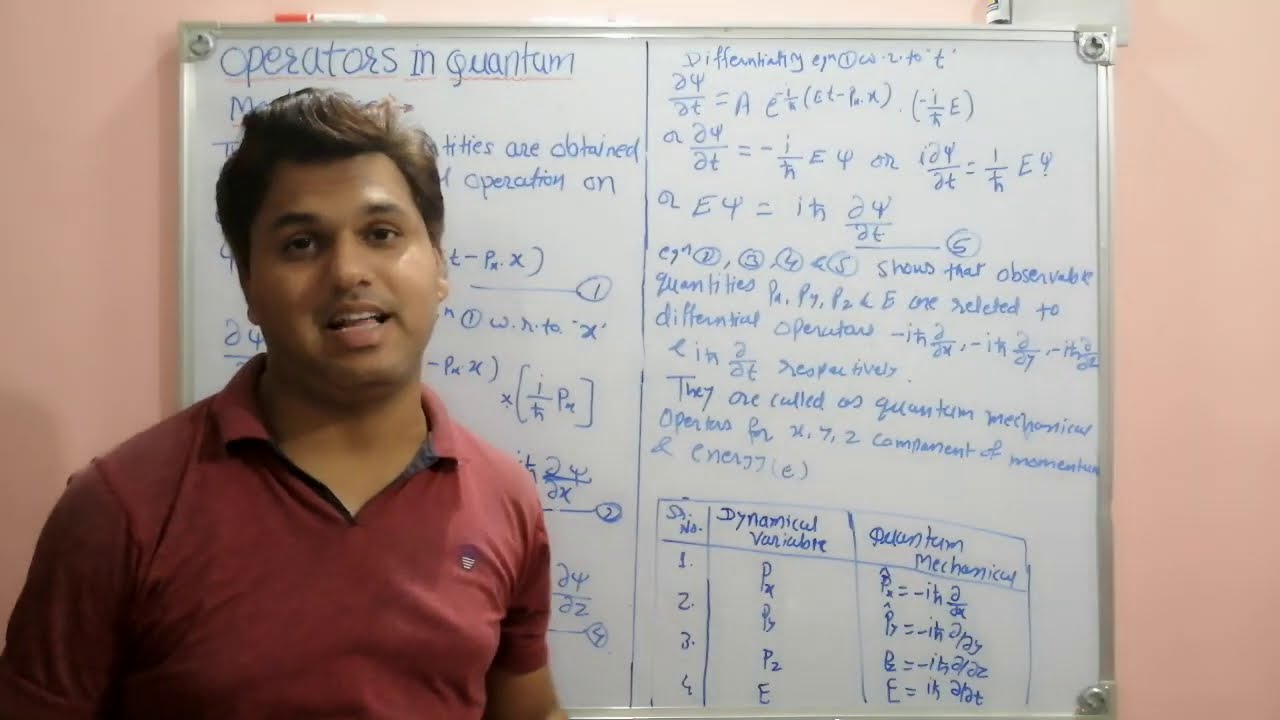 Operators in Quantum
ntities are obtained
operation on
t - Px.x)
①
① w.r.to "x"
∂Ψ
- Px x)
× [i/ħ Px]
iħ ∂Ψ/∂x
②
∂Ψ/∂z
④
Differntiating eqn ① w.r.to "t"
∂Ψ/∂t = A e^-i/ħ (Et - Px.x) . (-i/ħ E)
or ∂Ψ/∂t = - i/ħ E Ψ or i∂Ψ/∂t = 1/ħ E Ψ
or E Ψ = iħ ∂Ψ/∂t
⑤
eqn ②, ③, ④ & ⑤ shows that observable
quantities Px, Py, Pz & E are releted to
differntial operators -iħ ∂/∂x, -iħ ∂/∂y, -iħ ∂/∂z
& iħ ∂/∂t respectively.
They are called as quantum mechanical
Opertors for x, y, z component of momentum
& energy (e)
Sr. No. Dynamical Variable Quantum Mechanical
1. Px P̂x = -iħ ∂/∂x
2. Py P̂y = -iħ ∂/∂y
3. Pz P̂z = -iħ ∂/∂z
4 E E = iħ ∂/∂t